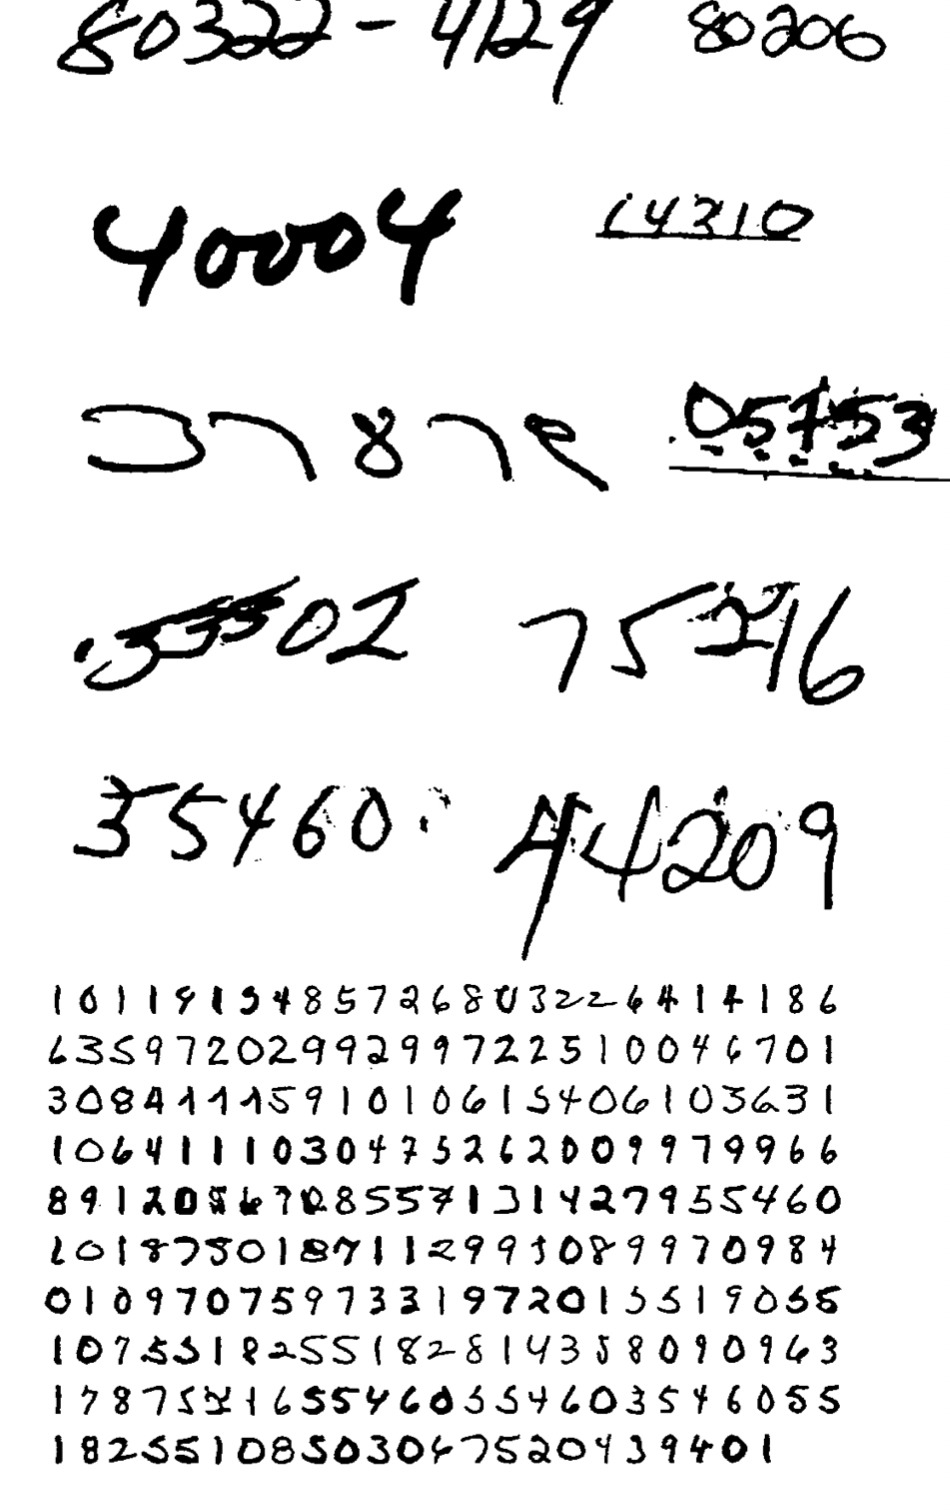 80322-4129 80206
40004 14310
37878 05753
35502 75216
35460 44209
1011915485726803226414186
6359720299299722510046701
3084111591010615406103631
1064111030475262009979966
8912056708557131427955460
2018730187112993089970984
0109707597331972015519055
1075518255182814358090963
1787521655460554603546055
18255108503047520439401